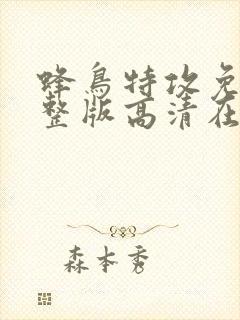 蜂鸟特攻免
整版高清在
森本秀